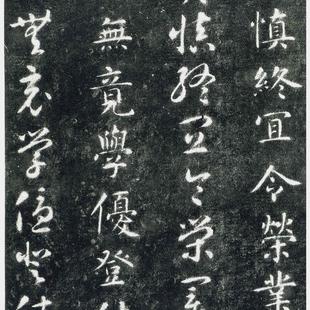 慎終宜令榮業
慎終宜令榮業
無竟學優登仕
無竟學優登仕